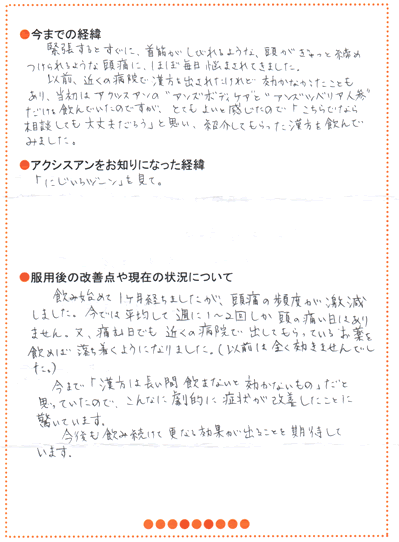 ●今までの経緯
緊張するとすぐに、首筋がしびれるような、頭がぎゅっと締め
つけられるような頭痛に、ほぼ毎日悩まされてきました。
以前、近くの病院で漢方を出されたけれど効かなかったことも
あり、当初はアクシスアンの"アンズボディケアと"アンズシベリア人参"
だけを飲んでいたのですが、とてもよいと感じたので「こちらでなら
相談しても大丈夫だろう」と思い、紹介してもらった漢方を飲んで
みました。
●アクシスアンをお知りになった経緯
「にじいろジーン」を見て。
●服用後の改善点や現在の状況について
飲み始めて1ヶ月経ちましたが、頭痛の頻度が激減
しました。今では平均して週に1～2回しか頭の痛い日はあり
ません。又、痛む日でも近くの病院で出してもらっているお薬を
飲めば落ち着くようになりました。(以前は全く効きませんでし
た。)
今まで「漢方は長い間飲まないと効かないもの」だと
思っていたので、こんなに劇的に症状が改善したことに
驚いています。
今後も飲み続けて更なる効果が出ることを期待して
います。